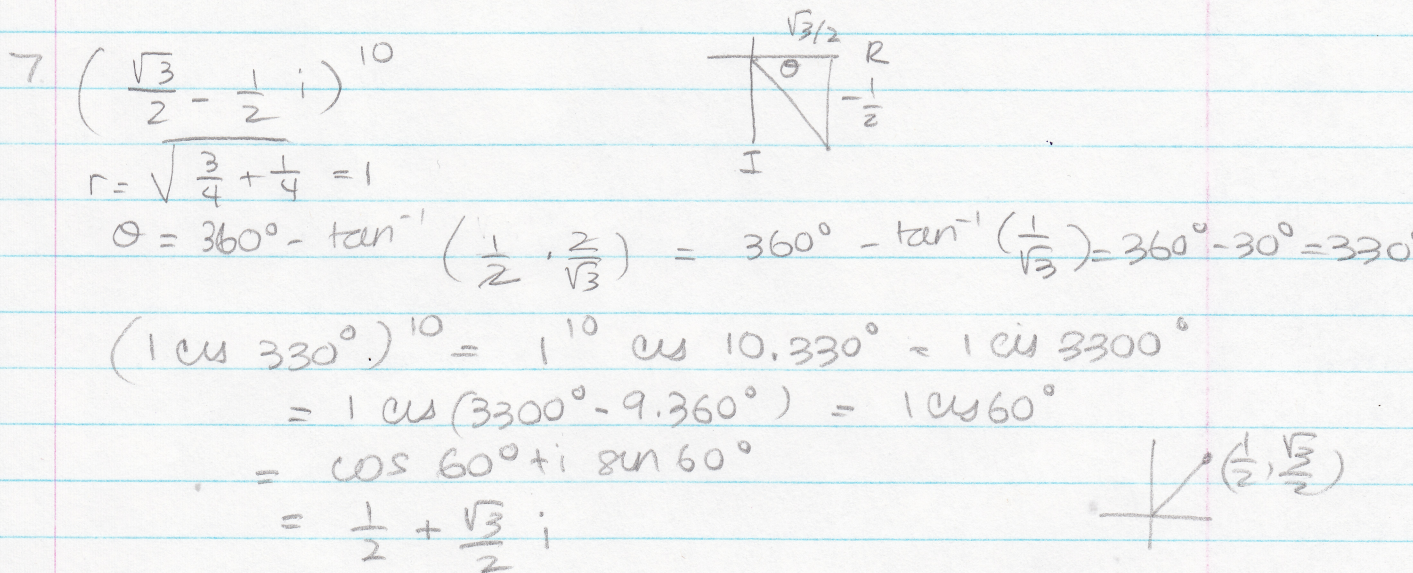 7 (√3/2 - 1/2 i)^10
√3/2
θ R
-1/2
I
r = √(3/4 + 1/4) = 1
θ = 360° - tan⁻¹ (1/2 · 2/√3) = 360° - tan⁻¹ (1/√3) = 360° - 30° = 330°
(1 cis 330°)^10 = 1^10 cis 10.330° = 1 cis 3300°
= 1 cis (3300° - 9.360°) = 1 cis 60°
= cos 60° + i sin 60°
(1/2, √3/2)
= 1/2 + √3/2 i